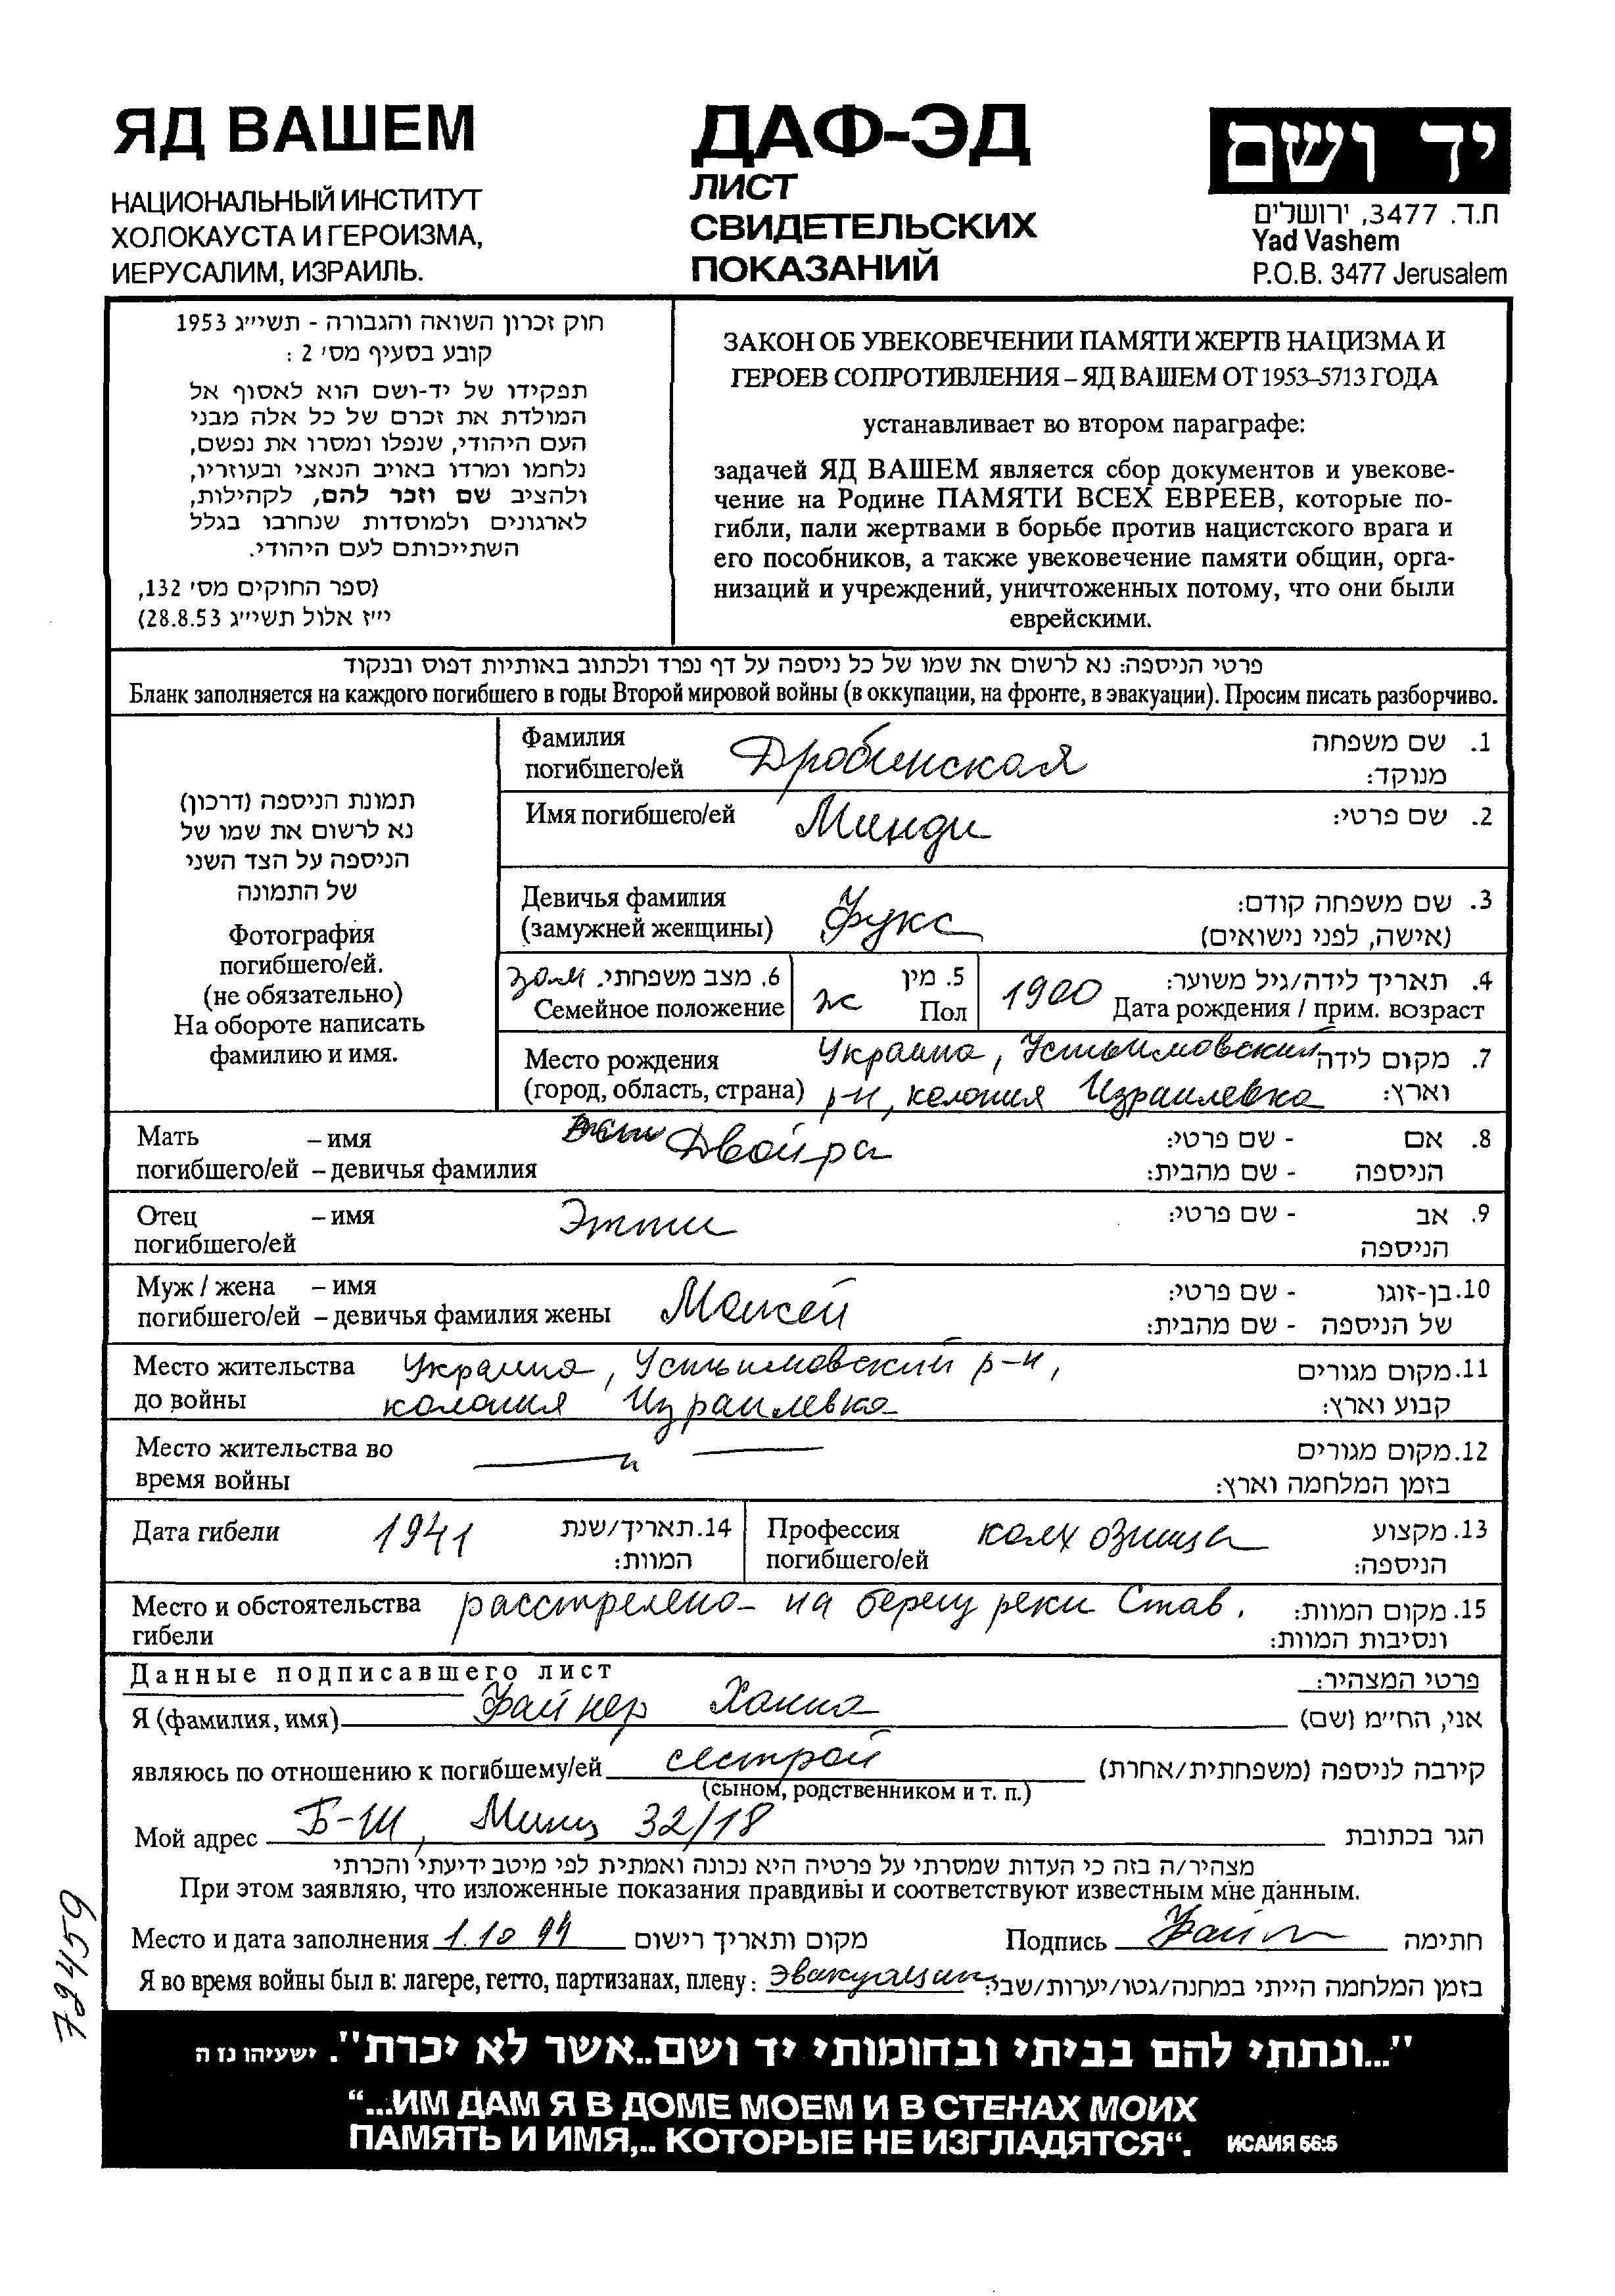 ЯД ВАШЕМ
НАЦИОНАЛЬНЫЙ ИНСТИТУТ
ХОЛОКАУСТА И ГЕРОИЗМА,
ИЕРУСАЛИМ, ИЗРАИЛЬ.
ДАФ-ЭД
ЛИСТ
СВИДЕТЕЛЬСКИХ
ПОКАЗАНИЙ
יד ושם
ת.ד. 3477, ירושלים
Yad Vashem
P.O.B. 3477 Jerusalem
חוק זכרון השואה והגבורה - תשי״ג 1953
קובע בסעיף מס׳ 2 :
תפקידו של יד-ושם הוא לאסוף אל
המולדת את זכרם של כל אלה מבני
העם היהודי, שנפלו ומסרו את נפשם,
נלחמו ומרדו באויב הנאצי ובעוזריו,
ולהציב שם וזכר להם, לקהילות,
לארגונים ולמוסדות שנחרבו בגלל
השתייכותם לעם היהודי.
(ספר החוקים מס׳ 132,
י״ז אלול תשי״ג 28.8.53)
ЗАКОН ОБ УВЕКОВЕЧЕНИИ ПАМЯТИ ЖЕРТВ НАЦИЗМА И
ГЕРОЕВ СОПРОТИВЛЕНИЯ – ЯД ВАШЕМ ОТ 1953–5713 ГОДА
устанавливает во втором параграфе:
задачей ЯД ВАШЕМ является сбор документов и увекове-
чение на Родине ПАМЯТИ ВСЕХ ЕВРЕЕВ, которые по-
гибли, пали жертвами в борьбе против нацистского врага и
его пособников, а также увековечение памяти общин, орга-
низаций и учреждений, уничтоженных потому, что они были
еврейскими.
פרטי הניספה: נא לרשום את שמו של כל ניספה על דף נפרד ולכתוב באותיות דפוס ובנקוד
Бланк заполняется на каждого погибшего в годы Второй мировой войны (в оккупации, на фронте, в эвакуации). Просим писать разборчиво.
תמונת הניספה (דרכון)
נא לרשום את שמו של
הניספה על הצד השני
של התמונה
Фотография
погибшего/ей.
(не обязательно)
На обороте написать
фамилию и имя.
Фамилия
погибшего/ей Дробинская 1. שם משפחה
מנוקד:
Имя погибшего/ей Минди 2. שם פרטי:
Девичья фамилия
(замужней женщины) Фукс 3. שם משפחה קודם:
(אישה, לפני נישואים)
зам 6. מצב משפחתי.
Семейное положение
ж 5. מין
Пол
1900 4. תאריך לידה/גיל משוער:
Дата рождения / прим. возраст
Место рождения Украина, Устимовский 7. מקום לידה
(город, область, страна) р-н, колония Израилевка וארץ:
Мать – имя Двойра 8. אם - שם פרטי:
погибшего/ей – девичья фамилия הניספה - שם מהבית:
Отец – имя Этти 9. אב - שם פרטי:
погибшего/ей הניספה
Муж / жена – имя Моисей 10. בן-זוגו - שם פרטי:
погибшего/ей – девичья фамилия жены של הניספה - שם מהבית:
Место жительства Украина, Устимовский р-н, 11. מקום מגורים
до войны колония Израилевка קבוע וארץ:
Место жительства во — и — 12. מקום מגורים
время войны בזמן המלחמה וארץ:
Дата гибели 1941 14. תאריך/שנת
המוות:
Профессия колхозница 13. מקצוע
погибшего/ей הניספה:
Место и обстоятельства расстрелена на берегу реки Став. 15. מקום המוות:
гибели ונסיבות המוות:
Данные подписавшего лист פרטי המצהיר:
Я (фамилия, имя) Файнер Ханна אני, הח״מ (שם)
являюсь по отношению к погибшему/ей сестрой קירבה לניספה (משפחתית/אחרת)
(сыном, родственником и т. п.)
Мой адрес Б-Ш, Минц 32/18 הגר בכתובת
מצהיר/ה בזה כי העדות שמסרתי על פרטיה היא נכונה ואמתית לפי מיטב ידיעתי והכרתי
При этом заявляю, что изложенные показания правдивы и соответствуют известным мне данным.
Место и дата заполнения 1.10 99 מקום ותאריך רישום Подпись Файн חתימה
Я во время войны был в: лагере, гетто, партизанах, плену: эвакуации בזמן המלחמה הייתי במחנה/גטו/יערות/שבי:
72459
"...ונתתי להם בביתי ובחומותי יד ושם..אשר לא יכרת". ישעיהו נז ה
“...ИМ ДАМ Я В ДОМЕ МОЕМ И В СТЕНАХ МОИХ
ПАМЯТЬ И ИМЯ,.. КОТОРЫЕ НЕ ИЗГЛАДЯТСЯ“. ИСАИЯ 56:5